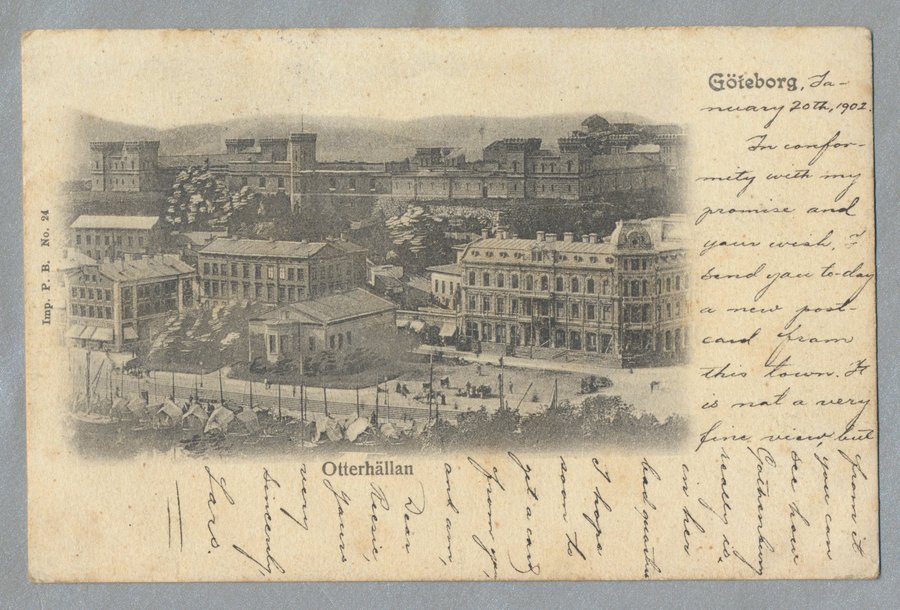 Göteborg, Ja-
nuary 20th, 1902.
In confor-
mity with my
promise and
your wish, I
send you to-day
a new post-
card from
this town. It
is not a very
fine view, but
from it
you can
see how
Gothenburg
really is
in her
bad quarters
I hope
soon to
get a card
from you,
and am,
Dear
Bessie,
Yours
very
sincerely,
Lars.
Otterhällan
Imp. P. B. No. 24